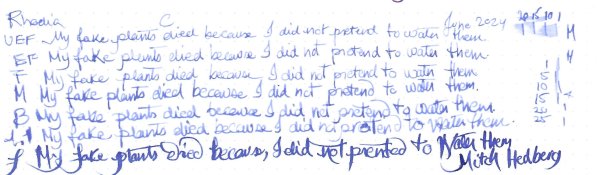 Rhodia C June 2024 20 15 10 1
UEF My fake plants died because I did not pretend to water them M
EF My fake plants died because I did not pretend to water them. M
F My fake plants died because I did not pretend to water them 5
M My fake plants died because I did not pretend to water them. 10
B My fake plants died because I did not pretend to water them 15
My fake plants died because I did not pretend to water them. 25
f My fake plants died because, I did not pretend to Water them
Mitch Hedberg